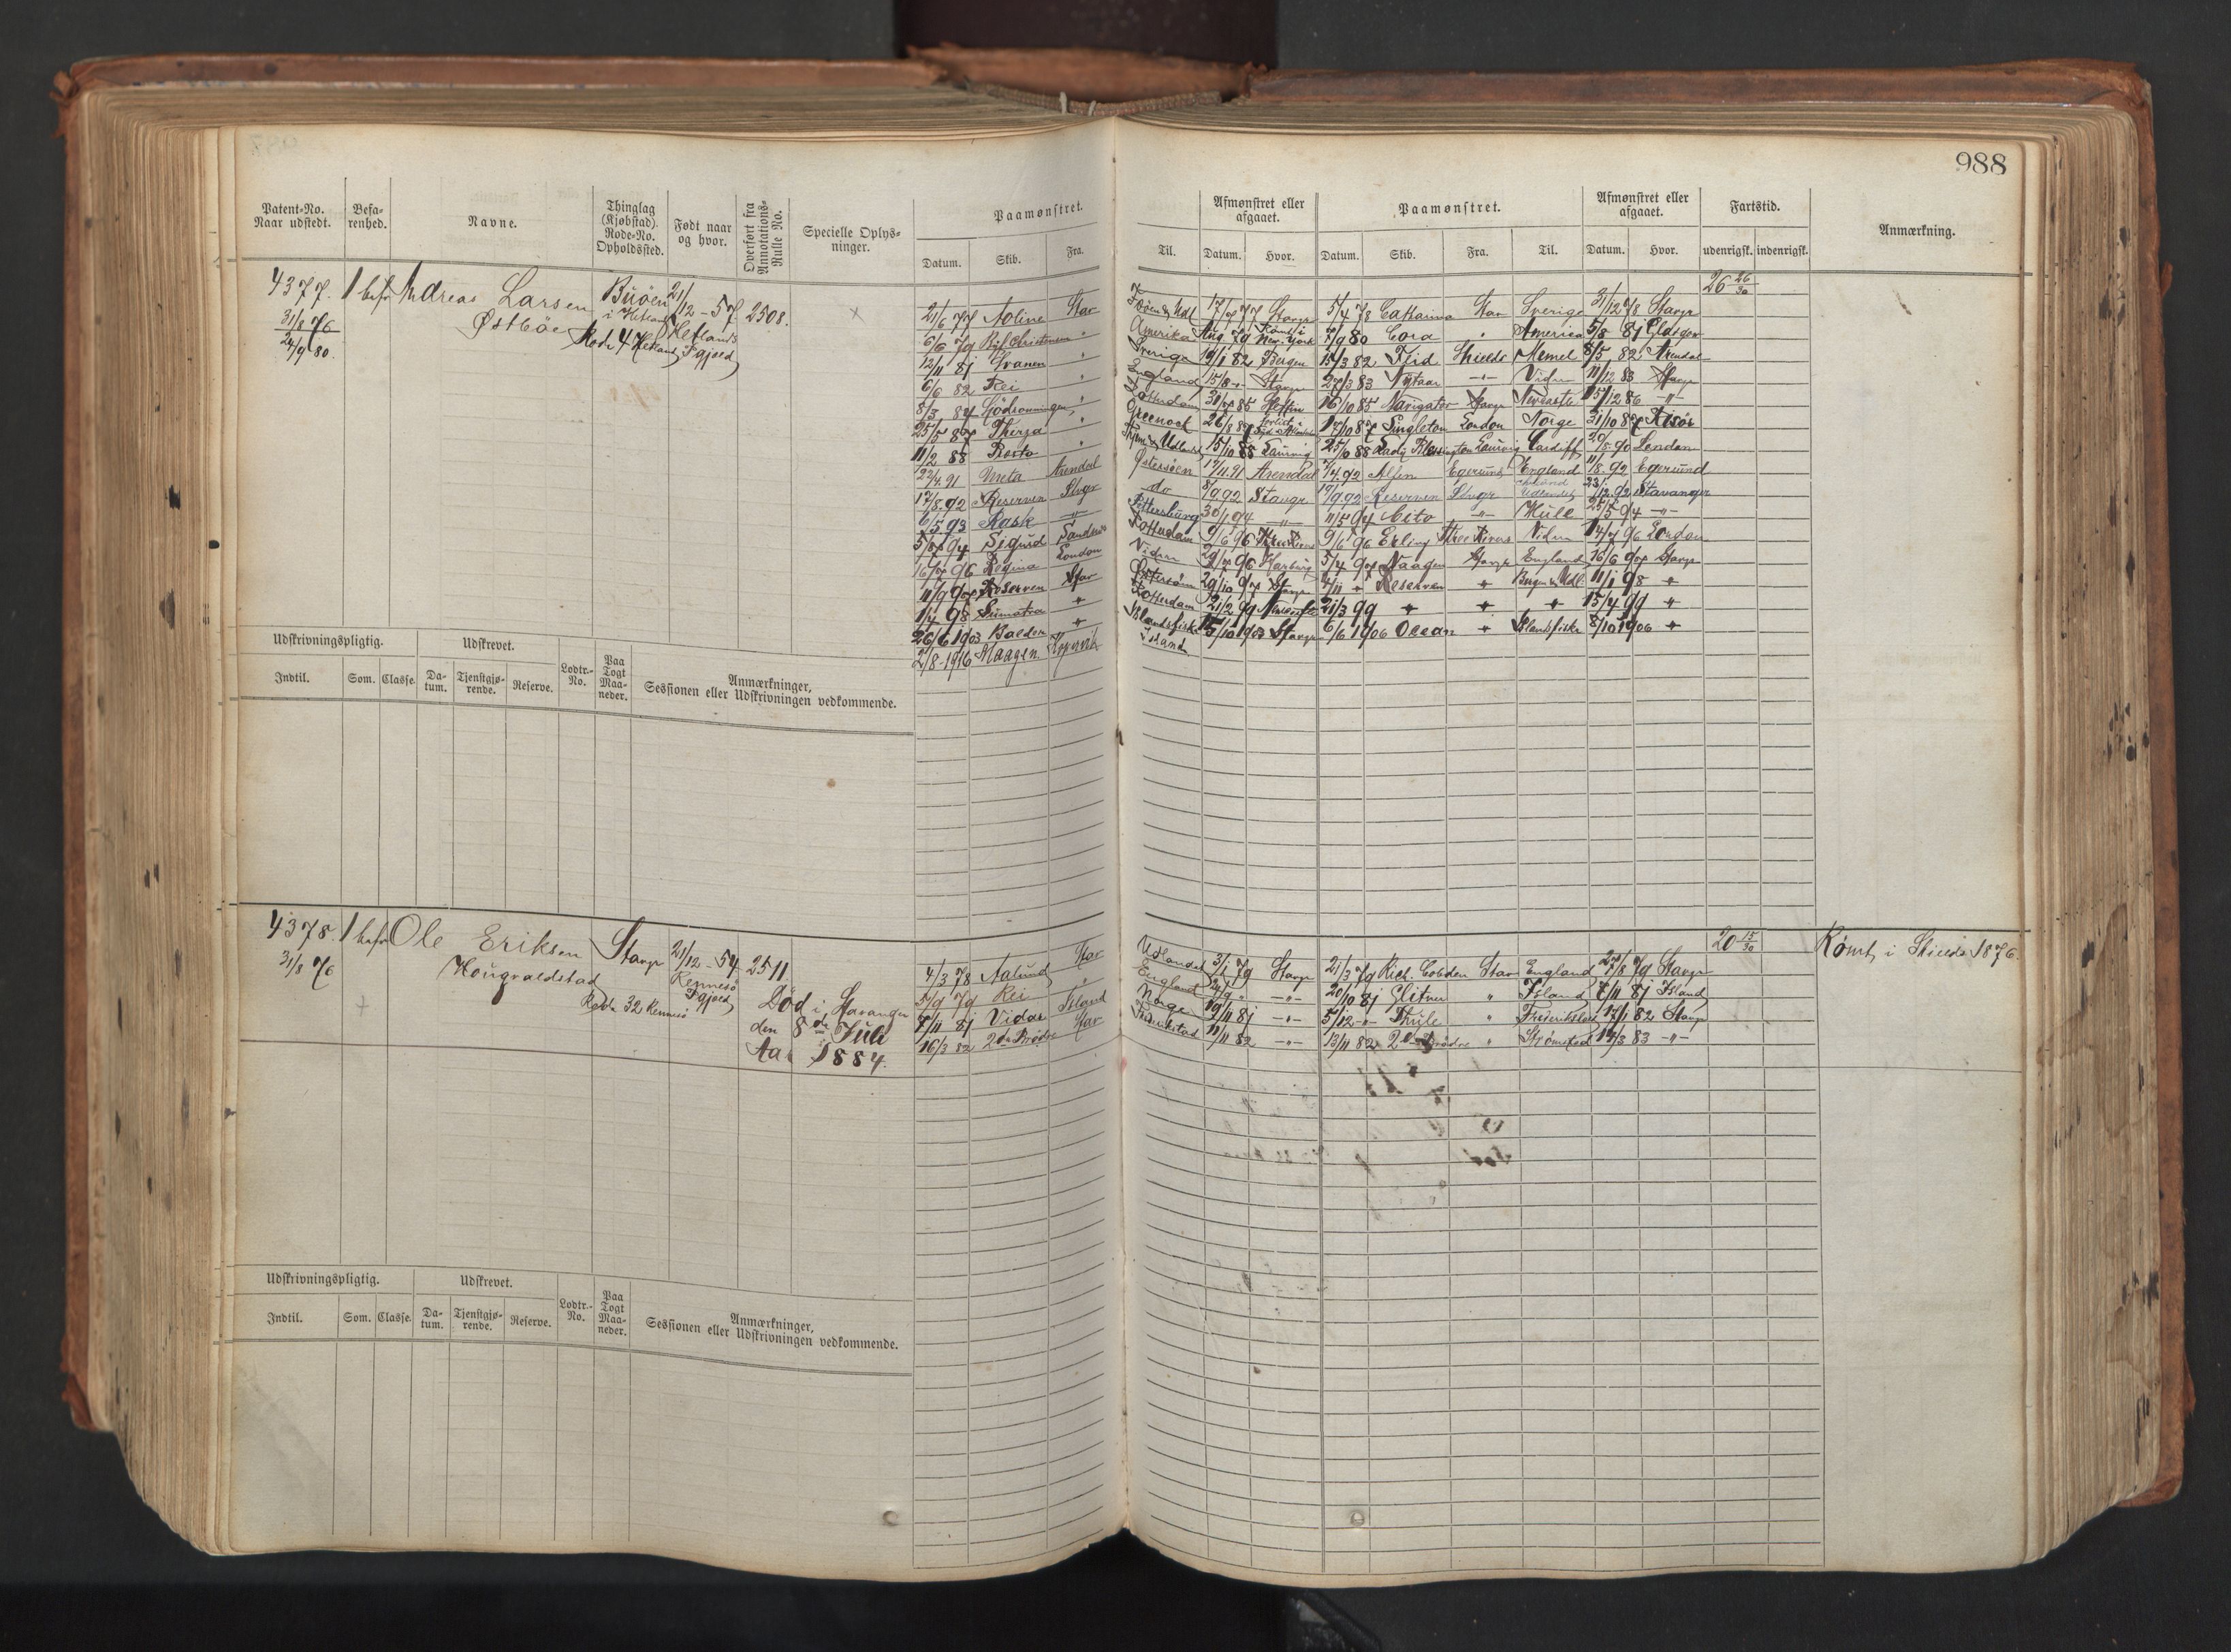 988
Patent-No. Naar udstedt. Befa-renhed. Navne. Thinglag (Kjøbstad). Rode-No. Opholdssted. Født naar og hvor. Overført fra Annotations-Rulle No. Specielle Oplys-ninger. Paamønstret.
Datum. Skib. Fra.
Afmønstret eller afgaaet. Paamønstret. Afmønstret eller afgaaet. Fartstid. Anmærkning.
Til. Datum. Hvor. Datum. Skib. Fra. Til. Datum. Hvor. udenrigsk. indenrigsk.
4377. 1 bef Andreas Larsen Buöen 21/12-57 2508.
31/8 76 Østböe i Hetland Hetlands
24/9 80. Rode 4 Hetland Pgjeld
26 26/30
21/6 77 Aoline Star 17/7 77 Stavgr 5/4 78 Catharina Star Sverige 31/12 78 Stavgr
6/6 79 Amerika Aug 79 Rømt i New-York 7/9 80 Cora " America 5/8 81
12/11 81 Svanen " Sverige 19/1 82 Bergen 15/3 82 Shields Memel 8/5 82 Arendal
6/6 82 Rei " England 15/8 " Stavgr 27/3 83 -"- Viden 11/12 83 Stavgr
8/3 84 " Rotterdam 31/7 85 Stettin 16/10 85 Navigator Stavgr Newcastle 15/12 86 -"-
25/5 87 Theiza " Greenock 26/8 87 forlist 17/10 87 Singleton London Norge 31/10 87 Risör
11/2 88 " 15/10 88 Laurvig 25/10 88 Laurvig Cardiff 20/8 90 London
22/4 91 Meta Arendal Østersöen 17/11 91 Arendal 7/4 92 Egersund England 11/8 92 Egersund
17/8 92 Reserven Stvgr do 8/9 92 Stavgr 19/9 92 Reserven Stvgr Udlandet 23/12 92 Stavanger
6/5 93 Rask -"- Pettersburg 30/1 94 -"- 11/5 94 Cito -"- Hull 25/5 94 -"-
5/7 94 Sigurd Rotterdam 9/6 96 Three Rivers 9/6 96 Erling Three Rivers Viden 14/7 96 London
16/7 96 Regina London Viden 29/1 96 Harburg 5/4 97 Haagen Stavgr England 16/6 97 Stavgr
11/9 97 Reserven Star Östersöen 29/10 97 Stavgr 4/11 " Reserven " 11/1 98 "
1/4 98 Sumatra " Rotterdam 21/2 99 21/3 99 " " " 15/4 99 "
26/6 1903 Balder " Islandsfiske 15/10 1903 Stavgr 6/6 1906 Ocean " Islandsfiske 8/10 1906 "
2/8-1916 Haagen Kopervik Island
Udskrivningspligtig. Udskrevet. Lodtr.-No. Paa Togt Maa-neder. Anmærkninger, Sessionen eller Udskrivningen vedkommende.
Indtil. Som. Classe. Da-tum. Tjenstgjø-rende. Reserve.
4378. 1 bef Ole Eriksen Stavgr 21/12-54 2511
31/8 76 Hougvaldstad Rennesö Pgjeld
Rode 32 Rennesö
Död i Stavanger
den 8de Juli
Aar 1884.
20 15/30 Rømt i Shields 1876.
4/3 78 Aalund Star Udlandet 3/1 79 Stavgr 21/3 79 Rich. Cobden Star England 27/8 79 Stavgr
5/9 79 Rei " England -"- 20/10 81 Glitner " Island 7/11 81 Island
7/11 81 Vidar Island Norge 19/11 81 -"- 5/12 -"- Thule " 17/1 82 Stavgr
16/3 82 2de Brödre Star 11/11 82 -"- 13/11 82 2de Brödre " Strømstad 19/3 83 -"-
Udskrivningspligtig. Udskrevet. Lodtr.-No. Paa Togt Maa-neder. Anmærkninger, Sessionen eller Udskrivningen vedkommende.
Indtil. Som. Classe. Da-tum. Tjenstgjø-rende. Reserve.